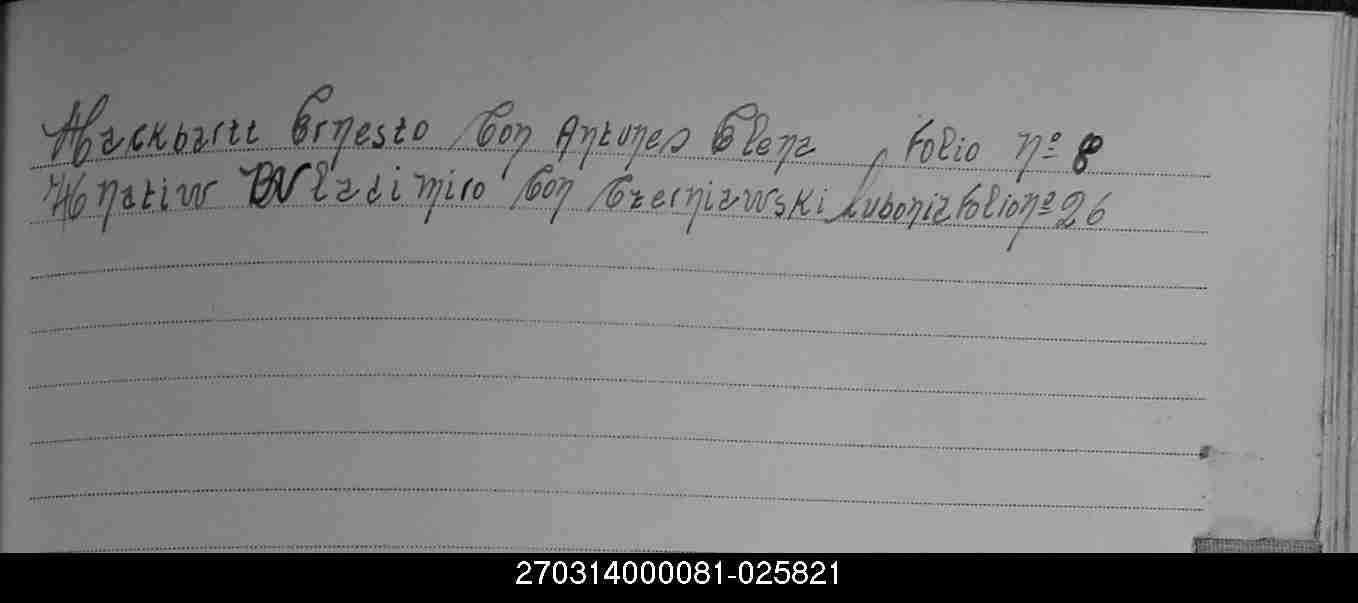 Hackbartt Ernesto Con Antunes Elena, Folio nº 8
Hnatiw Wladimiro Con Czerniawski Lubonia Folio nº 26
270314000081-025821